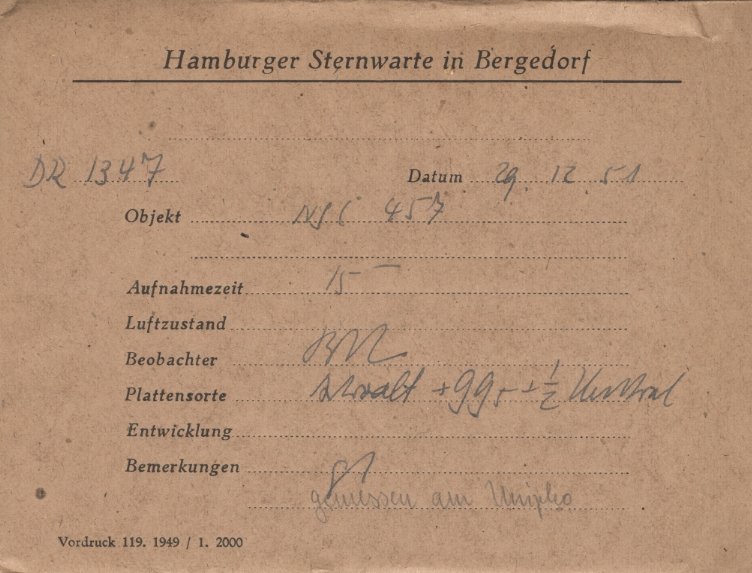 Hamburger Sternwarte in Bergedorf
DR 1347 Datum 29. 12. 51
Objekt NGC 457
Aufnahmezeit 15
Luftzustand
Beobachter
Plattensorte + 99 + ½
Entwicklung
Bemerkungen
gemessen am
Vordruck 119. 1949 / 1. 2000